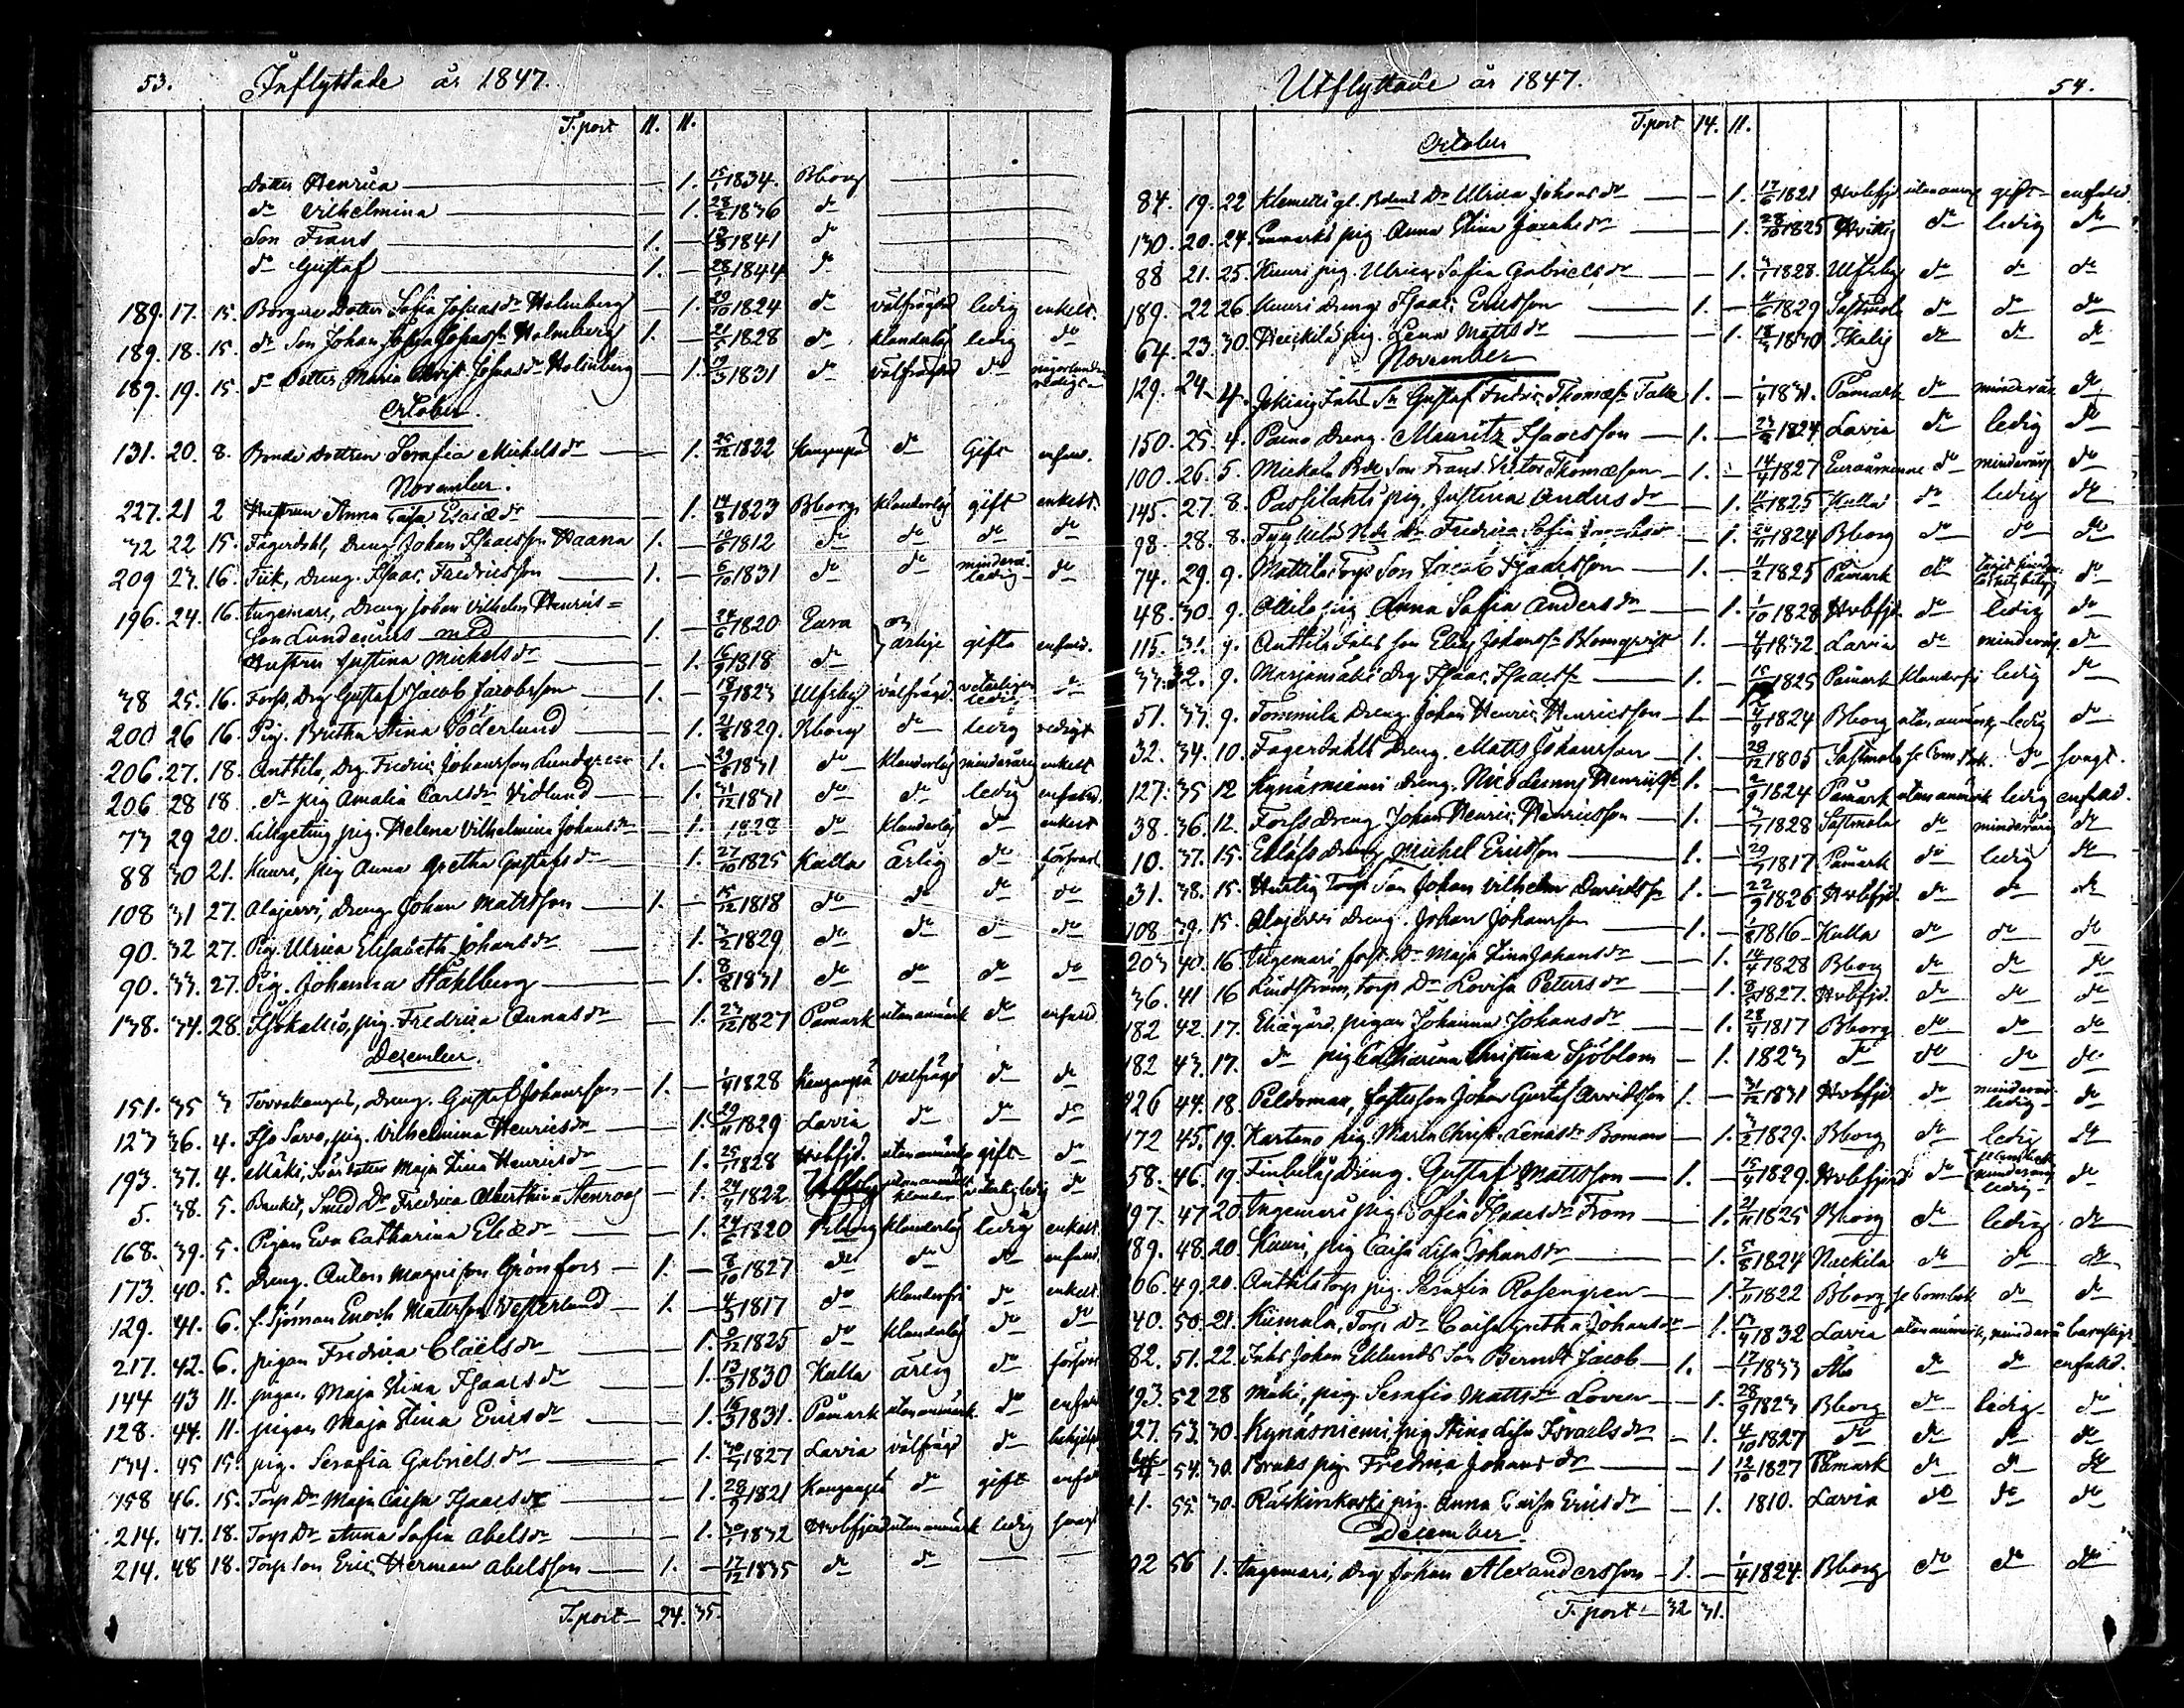 53. Inflyttade år 1847.
T.port 11. 11.
Dotter Henrica — 1. 15/1 1834. Bborg
do Vilhelmina — 1. 28/2 1836 do
Son Frans 1. — 1841 do
do Gustaf 1. — 28/1 1844 do
189. 17. 15. Borgare Dotter Sofia Johansdr Holmberg — 1. 29/10 1824 do välfrägdad ledig enkelt.
189. 18. 15. do Son Johan Johansson Holmberg 1. — 21/5 1828 do klanderlös ledig do
189. 19. 15. do Dotter Maria Christ. Johansdr Holmberg — 1. 19/3 1831 do välfrägdad do
October.
131. 20. 8. Bonde dottren Serafia Mickelsdr — 1. 25/12 1822 Kanganpä do Gift enfald.
November.
227. 21 2 Hustrun Anna Caisa Esaiædr — 1. 14/8 1823 Bborg klanderlös gift enkelt.
32 22 15. Fagerdahl, Dreng Johan Isaacsson Haana 1. — 10/6 1812 do do do do
209 23. 16. Tiik, Dreng. Isaac Fredricsson 1. — 6/10 1831 do do minderå. ledig do
196. 24. 16. Ingemars, Dreng Johan Vilhelm Henrics=
son Lundenius med 1. — 24/6 1820 Eura och ärlige gifta enfald.
Hustru Justina Mickelsdr — 1. 16/9 1818 do
38 25. 16. Forss, Drg Gustaf Jacob Jacobsson 1. — 18/7 1823 Ulfsby välfrägd. veterligen ledig do
200 26 16. Pig. Bretha Stina Söderlund — 1. 1829. Bborg do ledig redigt
206. 27. 18. Anttila, Drg. Fredric Johansson Lundgren 1. — 29/6 1831 do klanderlös minderårig enkelt
206 28 18. do pig Amalia Carlsdr Vidlund — 1. 31/12 1831 do do ledig enfald.
73 29 20. pig. Helena Vilhelmina Johansdr — 1. 1828 do klanderlös do enkelt
88 30 21. Kauri, pig Anna Gretha Gustafsdr — 1. 27/10 1825 Kulla ärlig do försvarl
108 31 27. Alajervi, Dreng Johan Mattsson 1. — 15/12 1818 do do do do
90. 32 27. Pig. Ulrica Elisabeth Johansdr — 1. 3/2 1829 do do do do
90. 33. 27. Pig. Johanna Ståhlberg — 1. 8/8 1831 do do do do
138. 34. 28. Isokallio, pig. Fredrica Annasdr — 1. 23/12 1827 Påmark utan anmärk do enfald
Dezember.
151. 35 3 Torvakangas, Dreng. Gustaf Johansson 1. — 1/4 1828 Kanganpä välfrägd do do
123 36. 4. Iso Savo, pig. Vilhelmina Henricsdr — 1. 29/11 1829 Lavia do do do
193. 37. 4. Mäki, Maja Stina Henricsdr — 1. 25/1 1828 Hvbfjd. utan anmärkn gift do
5. 38. 5. Banket, Smed Dr Fredrica Albertina Stenroos — 1. 24/11 1822 Ulfsby utan anmärk klander veterlig ledig do
168. 39. 5. Pigan Eva Catharina Eliædr — 1. 24/6 1820 Bborg klanderlös ledig enkelt
173. 40. 5. Dreng. Anders Magnisson Grönfors 1. — 8/10 1827 do do do enfald.
129. 41. 6. f. Sjöman Enoch Mattsson Vesterlund 1. — 4/3 1817 do klanderfri do enkelt
217. 42. 6. pigan Fredrica Claëlsdr — 1. 9/12 1825 do klanderlös do do
144 43 11. pigan Maja Stina Isaacsdr — 1. 13/3 1830 Kulla ärlig do försvar
128. 44. 11. pigan Maja Stina Ericsdr — 1. 16/3 1831. Påmark utan anmärk. do enfald
134. 45 15. pig. Serafia Gabrielsdr — 1. 30/7 1827 Lavia välfrägd do
158 46. 15. Torp Dr Maja Caisa Isaacsdr — 1. 28/9 1821 Kanganpä do gift enfald
214. 47. 18. Torp Dr Anna Sofia Abelsdr — 1. 30/1 1832 Hvbfjerd utan anmärk ledig svagt
214. 48 18. Torp son Eric Herman Abelsson 1. — 17/12 1835 do do
T.port 24. 35.
Utflyttade år 1847. 54.
T.port 14. 11.
October
84. 19. 22 Klemetti gl. Bonds Dr Ulrica Johansdr — 1. 17/6 1821 Hvbfjd utan anm. gift enfald.
130. 20. 24. Enmarks pig Anna Stina Jacobsdr — 1. 28/10 1825 Hvittis do ledig do
88 21. 25. Kauri pig. Ulrica Sofia Gabrielsdr — 1. 1828. Ulfsby do do do
189. 22 26 Kauri Dreng Isaac Ericsson 1. — 1829 Sastmola do do do
64. 23. 30. Heickilä pig. Lena Mattsdr — 1. 18/3 1830 Ikalis do do do
November
129. 24 4. Inhs Sn Gustaf Fredric Thomæs. 1. — 1/4 1831. Påmark do minderår. do
150. 25. 4. Paino Dreng. Mauritz Isacsson 1. — 1824 Lavia do ledig do
100. 26. 5. Mickola Bde Son Frans Victor Thomæson 1. — 14/4 1827 Euraåminne do minderårig do
145. 27. 8. Passilahti pig. Justina Andersdr — 1. 1825 Kulla do ledig do
98. 28. 8. Dr Fredrica Sofia — 1. 1824 Bborg do do do
74. 29. 9. Mattila Torp Son Jacob Isaacsson 1. — 1825 Påmark do do
48. 30. 9. Ollila pig Anna Sofia Andersdr — 1. 1/10 1828 Hvbfjd do ledig do
115. 31. 9. Anttila Inhs son Elias Johans. Blomqvist 1. — 1832 Lavia do minderårig do
33. 32. 9. Marjamäki drg Isaac Isaacs. 1. — 1825 Påmark klanderfri ledig do
51. 33. 9. Tommila Dreng. Johan Henric Henricsson 1. — 1824 Bborg utan anmärk. ledig do
32. 34. 10. Fagerdahls Dreng. Matts Johansson 1. — 28/12 1805 Sastmola do svagt.
127. 35 12 Kynäsniemi Dreng. Nicodemus Henrics. 1. — 2/9 1824 Påmark utan anmärk ledig enfald.
38. 36. 12. Forss Dreng. Johan Henric Henricsson 1. — 3/7 1828 Sastmola do minderårig do
10. 37. 15. Eklöfs dreng Michel Ericsson 1. — 29/9 1817 Påmark do ledig do
31. 38. 15. Hurtig Torp Son Johan Vilhelm Davidss. 1. — 22/9 1826 Hvbfjd. do do do
108 39. 15. Alajervi dreng. Johan Johansson 1. — 1/8 1816 Kulla do do do
203 40. 16 Ingemari, Dr Maja Stina Johansdr — 1. 14/4 1828 Bborg do do do
36. 41 16 Lindström, torp Dr Lovisa Petersdr — 1. 1827. Hvbfjd. do do do
182 42. 17. pigan Johanna Johansdr — 1. 28/4 1817 Bborg do do do
182 43. 17. do pig Catharina Christina Sjöblom — 1. 1823 do do do do
44. 18. Peldoman, Johan Gustaf Arvidsson 1. — 31/12 1831 Hvbfjd do minderår. ledig do
172 45. 19. Kartano pig Maria Christ. Lenasdr Boman — 1. 3/2 1829. Bborg do ledig do
58. 46. 19 Finbelas dreng. Gustaf Mattsson 1. — 15/4 1829. Hvbfjerd do minderårig ledig do
197. 47 20 Ingemari pig Sofia Isaacsdr From — 1. 21/11 1825 Bborg do ledig do
189. 48. 20. Kauri, pig Caisa Lisa Johansdr — 1. 5/8 1824 Nackila do do do
206. 49. 20. Anttila torp pig. Serafia Rosengren — 1. 7/11 1822 Bborg do do
140. 50. 21. Kiimala, Torp Dr Caisa Gretha Johansdr — 1. 17/4 1832 Lavia utan anmärk. minderå
82. 51. 22. Inhs Johan Eklunds Son Berndt Jacob 1. — 17/7 1833 Åbo do do enfald.
193. 52 28 Mäki, pig. Serafia Mattsdr Loven — 1. 28/9 1823 Bborg do ledig do
127. 53. 30. Kynäsniemi, pig Stina Lisa Israelsdr — 1. 4/10 1827 do do do do
54. 30. Bruks pig. Fredrica Johansdr — 1 12/10 1827 Påmark do do do
41. 55. 30. pig. Anna Caisa Ericsdr — 1. 1810. Lavia do do do
December.
56 1. Ingemari, Drg Johan Alexandersson 1. — 1/4 1824. Bborg do do do
T.port 32 31.